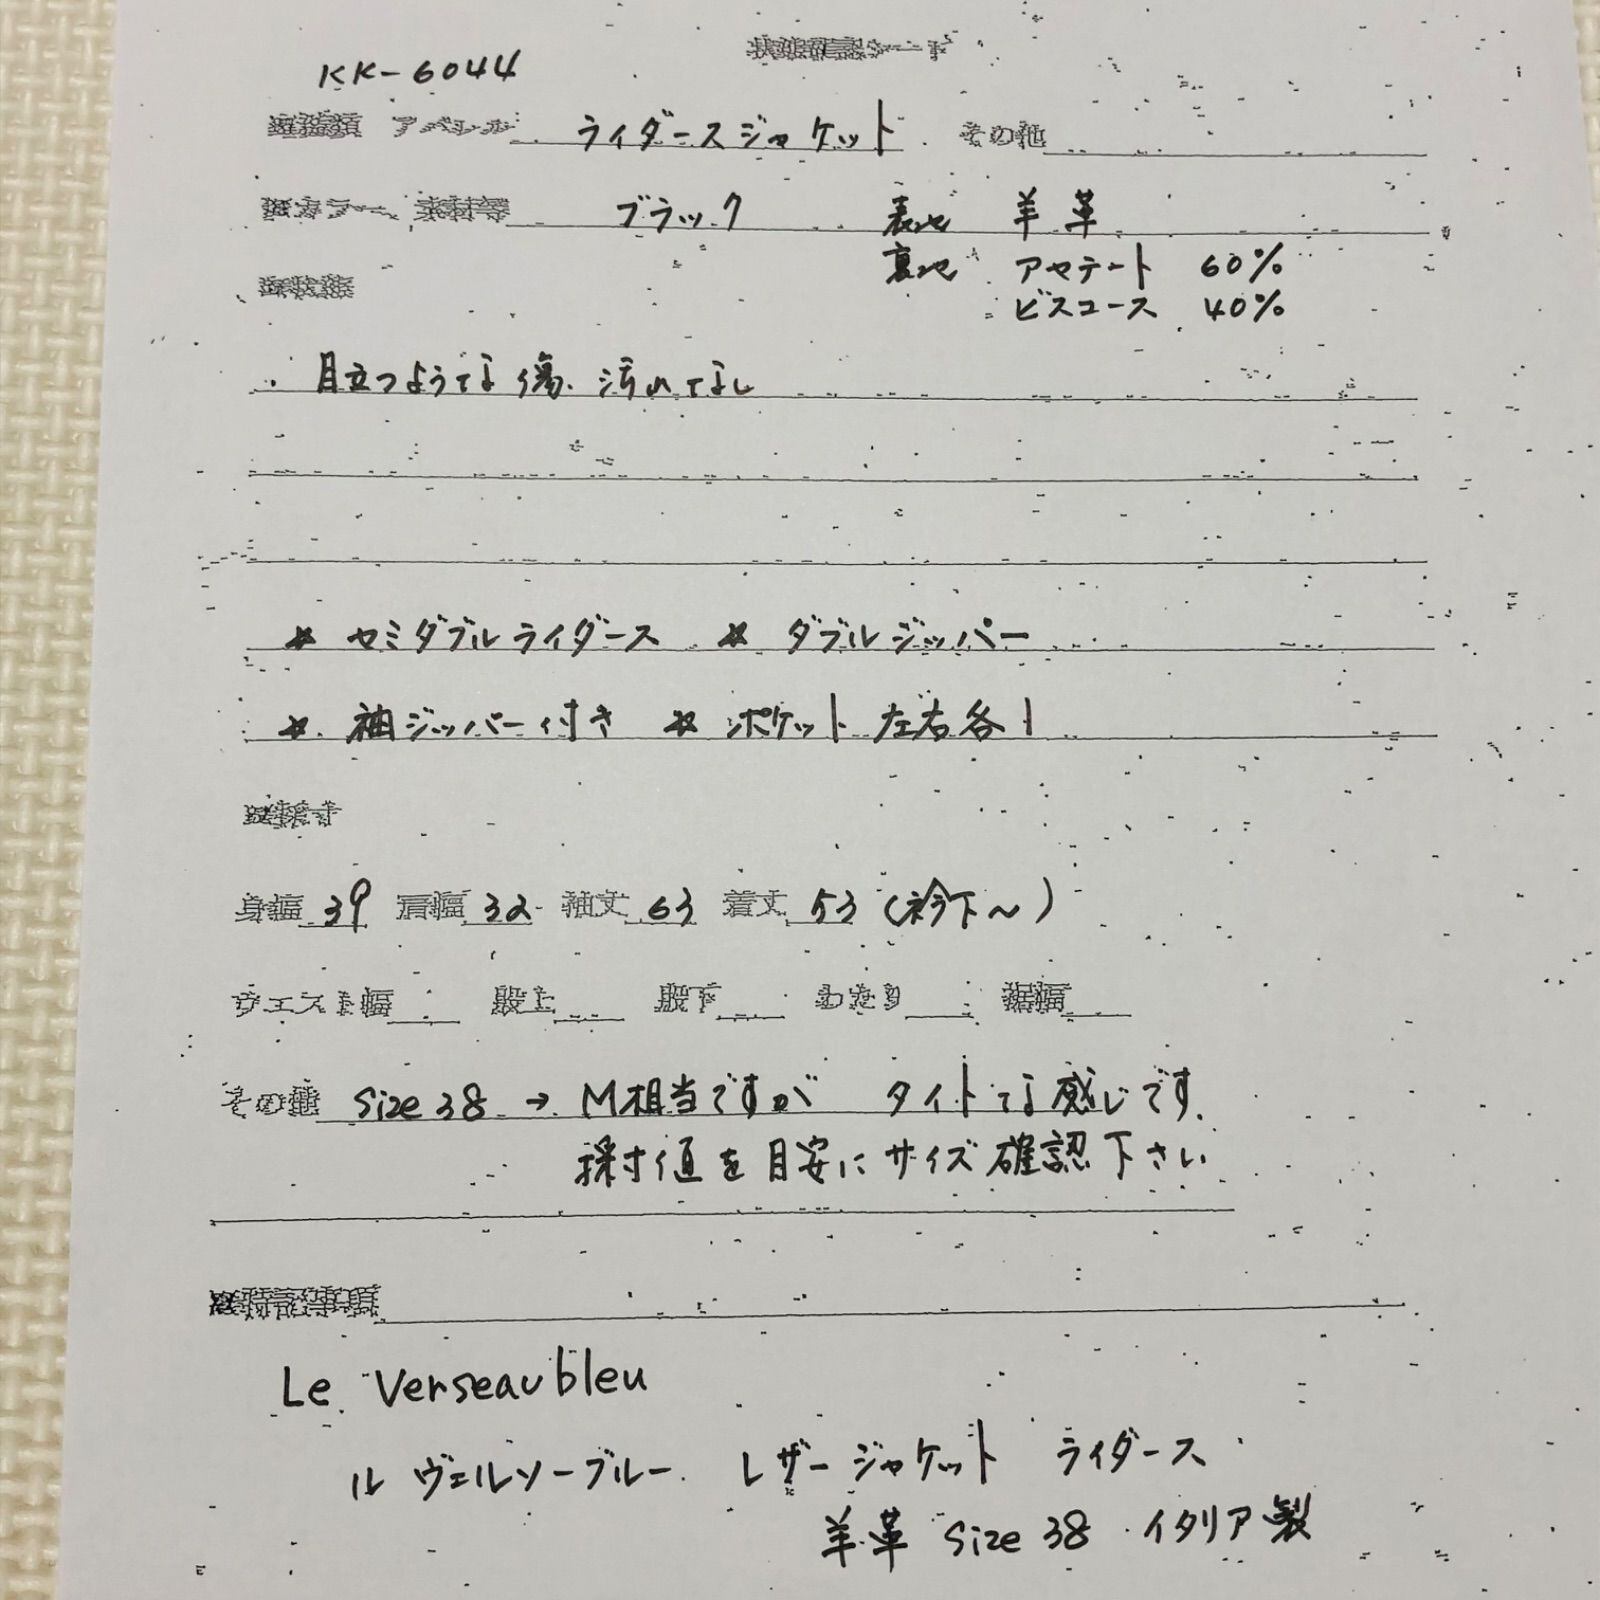 状態確認シート
KK-6044
種類 アパレル ライダースジャケット その他
カラー、素材等 ブラック 表地 羊革
裏地 アセテート 60%
ビスコース 40%
状態
・目立つような傷、汚れなし
* セミダブルライダース * ダブルジッパー
* 袖ジッパー付き * ポケット左右各1
採寸
身幅 39 肩幅 32 袖丈 63 着丈 53 (衿下〜)
ウエスト幅 股上 股下 わたり 裾幅
その他 size 38 → M相当ですが タイトな感じです。
採寸値を目安にサイズ確認下さい
特記事項
Le Verseaubleu
ル ヴェルソーブルー レザージャケット ライダース
羊革 size 38 イタリア製